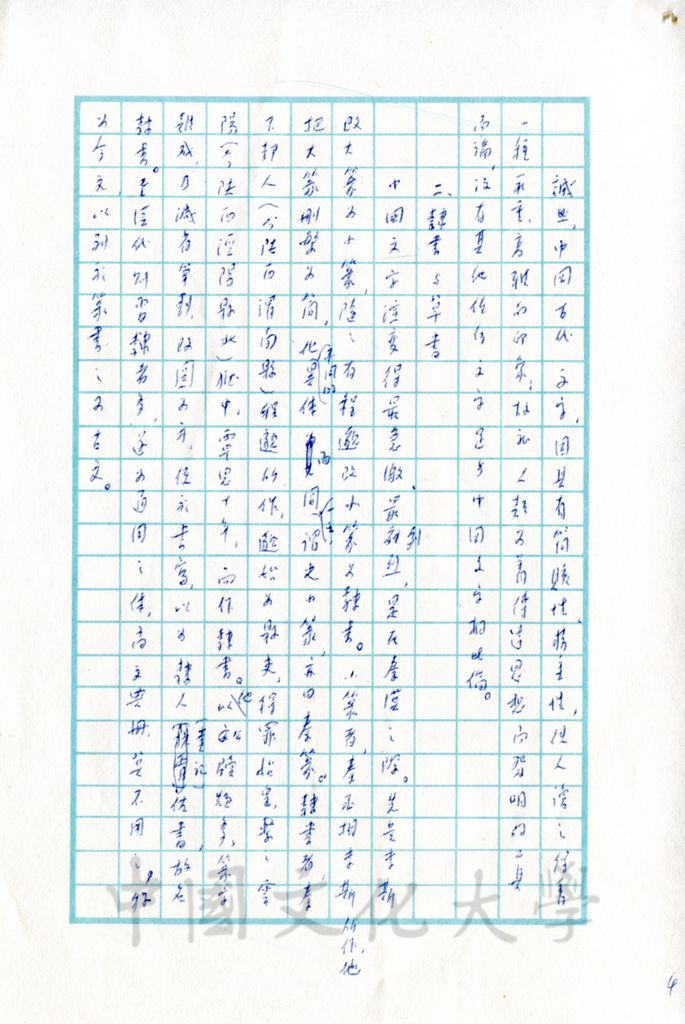 誠然，中国古代文字，因具有簡賅性，穩定性，但人濡之從書
一種莊重、高雅的印象，故所人類為着傳達思想而發明的工具
而論，沒有其他任何文字足与中国文字相比倫。
二、隸書与草書
中國文字演變得最急激、最劇烈，是在秦漢之際。先是李斯
改大篆為小篆，隨之有程邈改小篆為隸書。小篆者，秦丞相李斯所作，他
把大篆刪繁為簡，化異体（字同的）而同（一字），謂之小篆，亦曰秦篆。隸書者，秦
下邽人（今陝西渭南縣）程邈所作，邈始為縣吏，得罪始皇，繫之雲
陽（今陝西涇陽縣北）獄中，覃思十年，而作隸書。他以公文繁多，篆字
難成，乃減省筆劃，改圓為方，便於書寫，以為隸人（書記）佐書，故名
隸書。至漢代則習隸者多，遂為通用之体，高文典冊，莫不用之。稱
為今文，以別於篆書之為古文。
4
中國文化大學